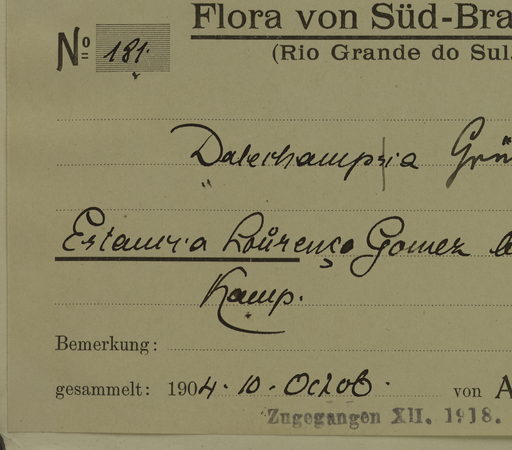 Flora von Süd-Bra
(Rio Grande do Sul.
No 181.
Dalechampsia Grü
Estancia Lourenço Gomez
Kamp.
Bemerkung:
gesammelt: 1904. 10. Octob. von A
Zugegangen XII. 1918.